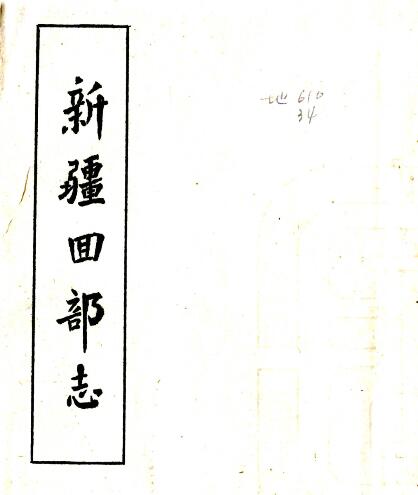 新疆回部志
地 610
34